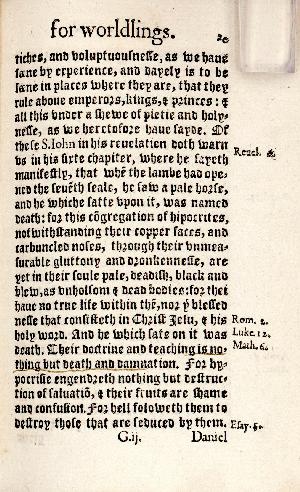 for worldlings.
riches, and voluptuousnesse, as we haue
sene by experience, and dayely is to be
sene in places where they are, that they
rule aboue emperors, kings, & princes: &
all this vnder a shewe of pietie and holy-
nesse, as we heretofore haue sayde. Of
these S. Iohn in his reuelation doth warn
vs in his sixte chapiter, where he sayeth
Reuel. 6.
manifestly, that whē the lambe had ope-
ned the seuēth seale, he saw a pale horse,
and he whiche satte vpon it, was named
death: for this cōgregation of hipocrites,
notwithstanding their copper faces, and
carbuncled noses, through their vnmea-
surable gluttony and dronkennesse, are
yet in their soule pale, deadish, black and
blew, as vnholsom & dead bodies: for thei
haue no true life within thē, nor þͤ blessed
nesse that consisteth in Christ Jesu, & his
Rom. 2.
holy word. And he which sate on it was
Luke. 12.
death. Their doctrine and teaching is no-
Math. 6.
thing but death and damnation. For hy-
pocrisie engendreth nothing but destruc-
tion of saluatiō, & their fruits are shame
and confusion. For hell foloweth them to
destroy those that are seduced by them.
Esay. 5.
G.ij. Daniel